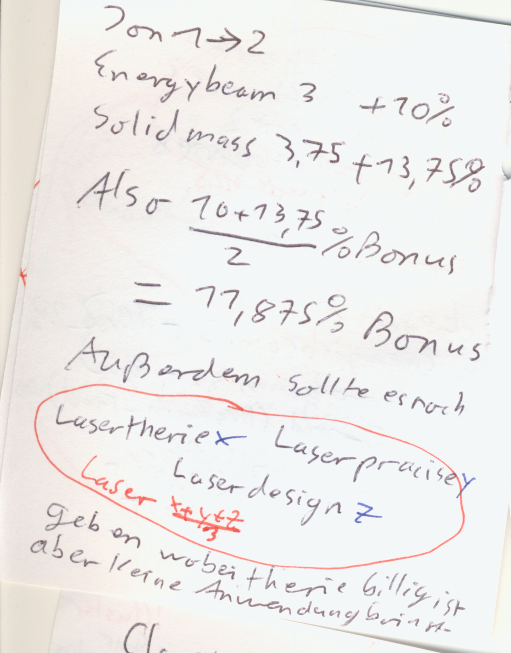 Ion 1→2
Energybeam 3 +10%
Solid mass 3,75 +13,75%
Also (10+13,75)/2 % Bonus
= 11,875% Bonus
Außerdem sollte es noch
Lasertherie x Laserpracise y
Laserdesign z
Laser (x+y+z)/3
geben wobei therie billig ist
aber keine Anwendung